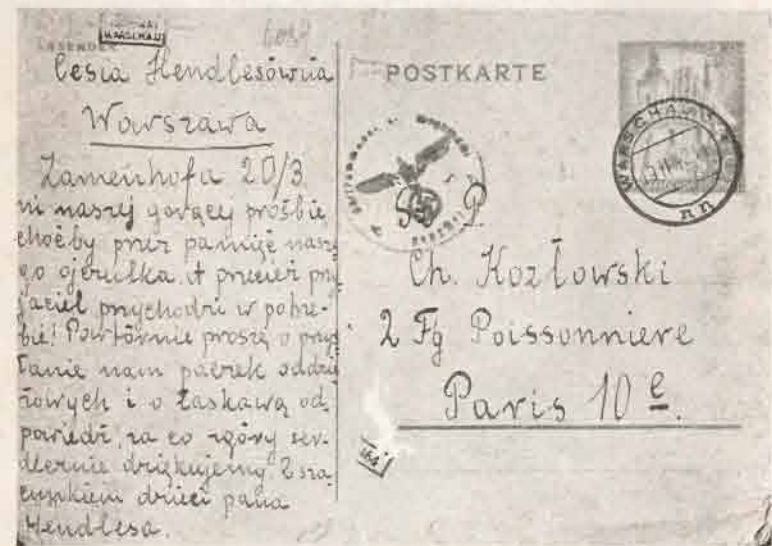 WARSCHAU
ABSENDER
Cesia Hendlesówna
Warszawa
Zamenhofa 20/3
ni naszej gorącej prośbie
choćby przez pamięć nasze
go ojczulka. A przecież przy
jaciel przychodzi w potrze-
bie! Powtórnie proszę o przy
słanie nam paczek oddzia
łowych i o łaskawą od
powiedź, za co zgóry ser-
decznie dziękujemy. Z sza
cunkiem dzieci pana
Hendlesa.
POSTKARTE
WARSCHAU
S. P.
Ch. Kozłowski
2 Fg Poissonniere
Paris 10e.